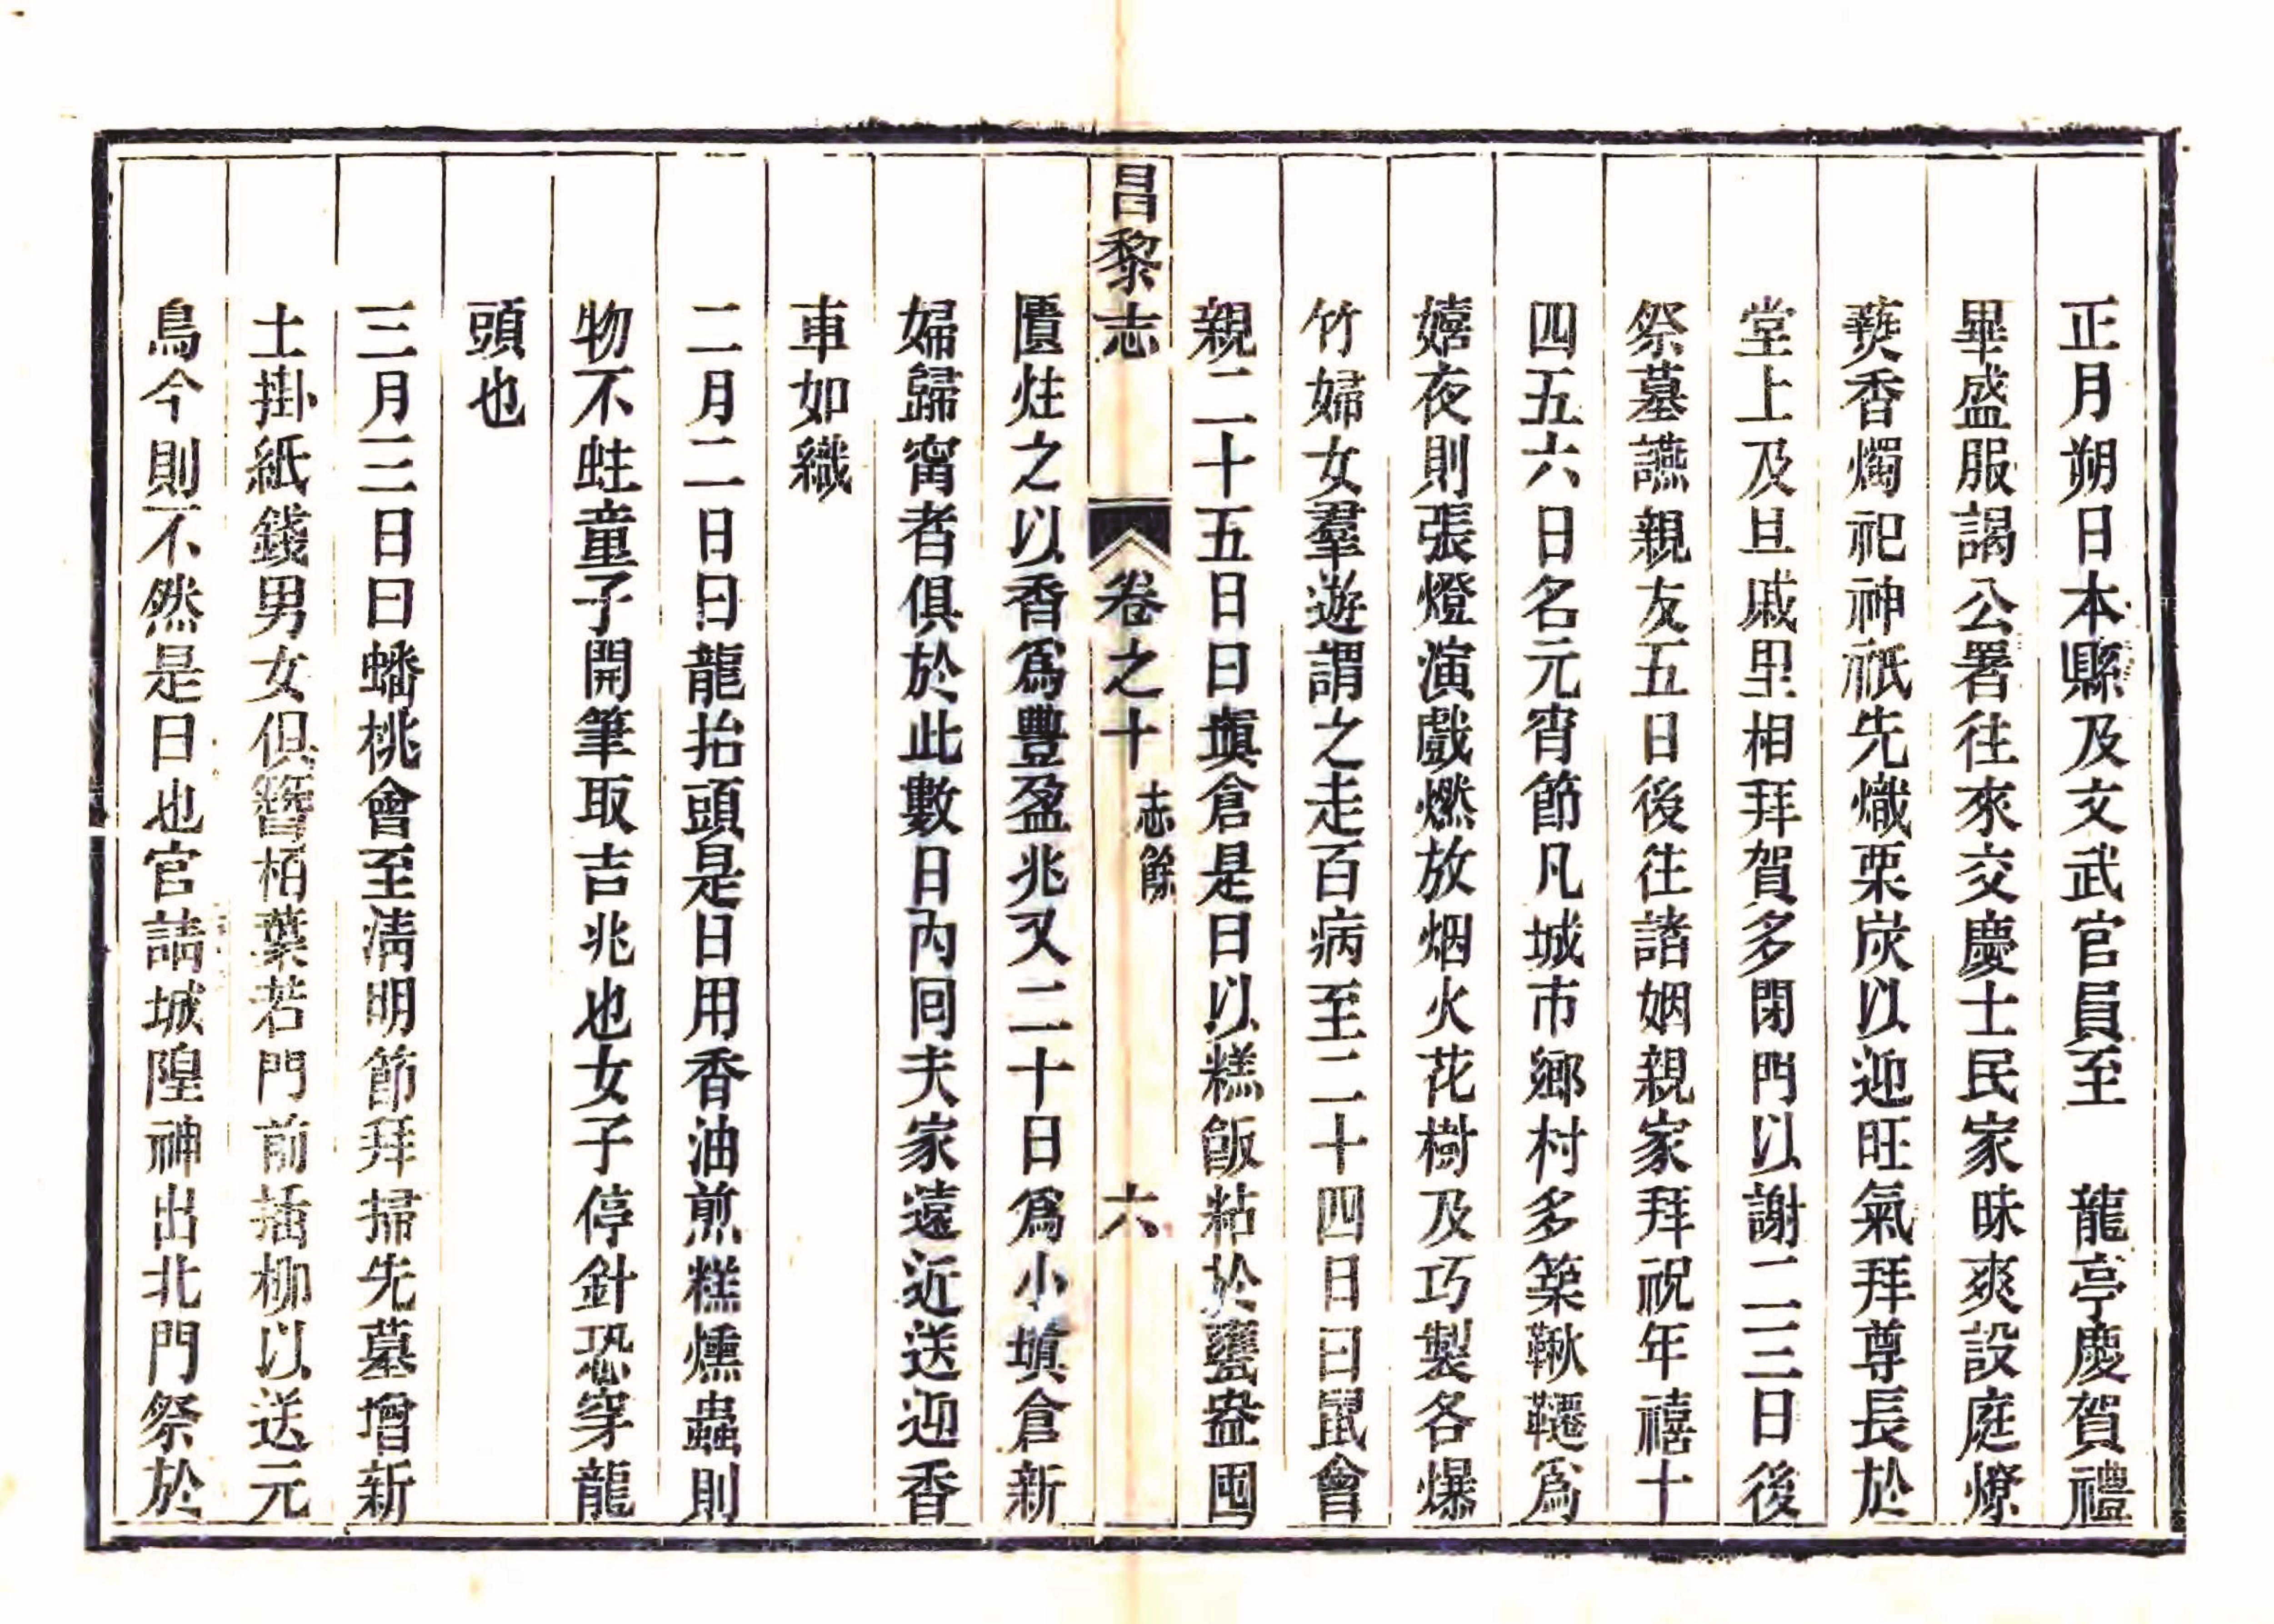 正月朔日本縣及文武官員至　龍亭慶賀禮
畢盛服謁公署往來交慶士民家昧爽設庭燎
爇香燭祀神祇先熾栗炭以迎旺氣拜尊長於
堂上及旦戚里相拜賀多閉門以謝二三日後
祭墓讌親友五日後往諸姻親家拜祝年禧十
四五六日名元宵節凡城市鄉村多築鞦韆爲
嬉夜則張燈演戲燃放烟火花樹及巧製各爆
竹婦女羣遊謂之走百病至二十四日曰鼠會
親二十五日曰塡倉是日以糕飯粘於甕盎囤
昌黎志　卷之十　志餘　六
匱炷之以香爲豐盈兆又二十日爲小塡倉新
婦歸甯者俱於此數日內囘夫家遠近送迎香
車如織
二月二日曰龍抬頭是日用香油煎糕燻蟲則
物不蛀童子開筆取吉兆也女子停針恐穿龍
頭也
三月三日曰蟠桃會至淸明節拜掃先墓增新
土掛紙錢男女俱簪栢葉若門前插柳以送元
鳥今則不然是日也官請城隍神出北門祭於